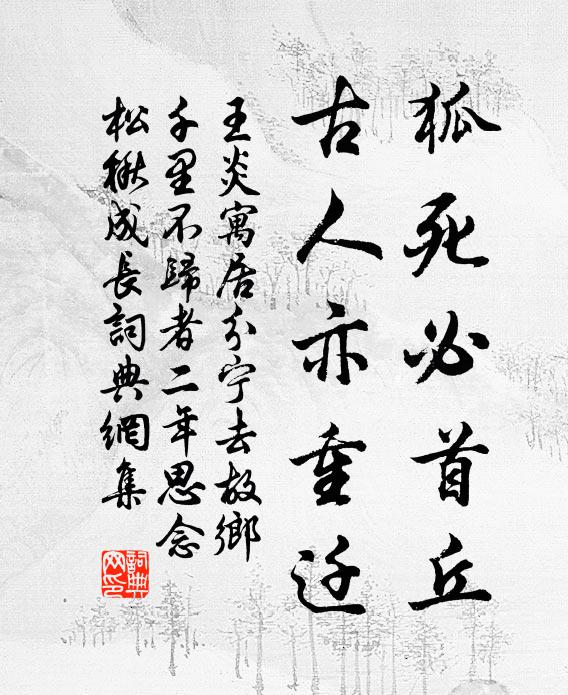 狐死必首丘
古人亦重迁
王炎寓居分宁去故鄉
千里不歸者二年思念
松楸成長詞典網集
詞典
网印